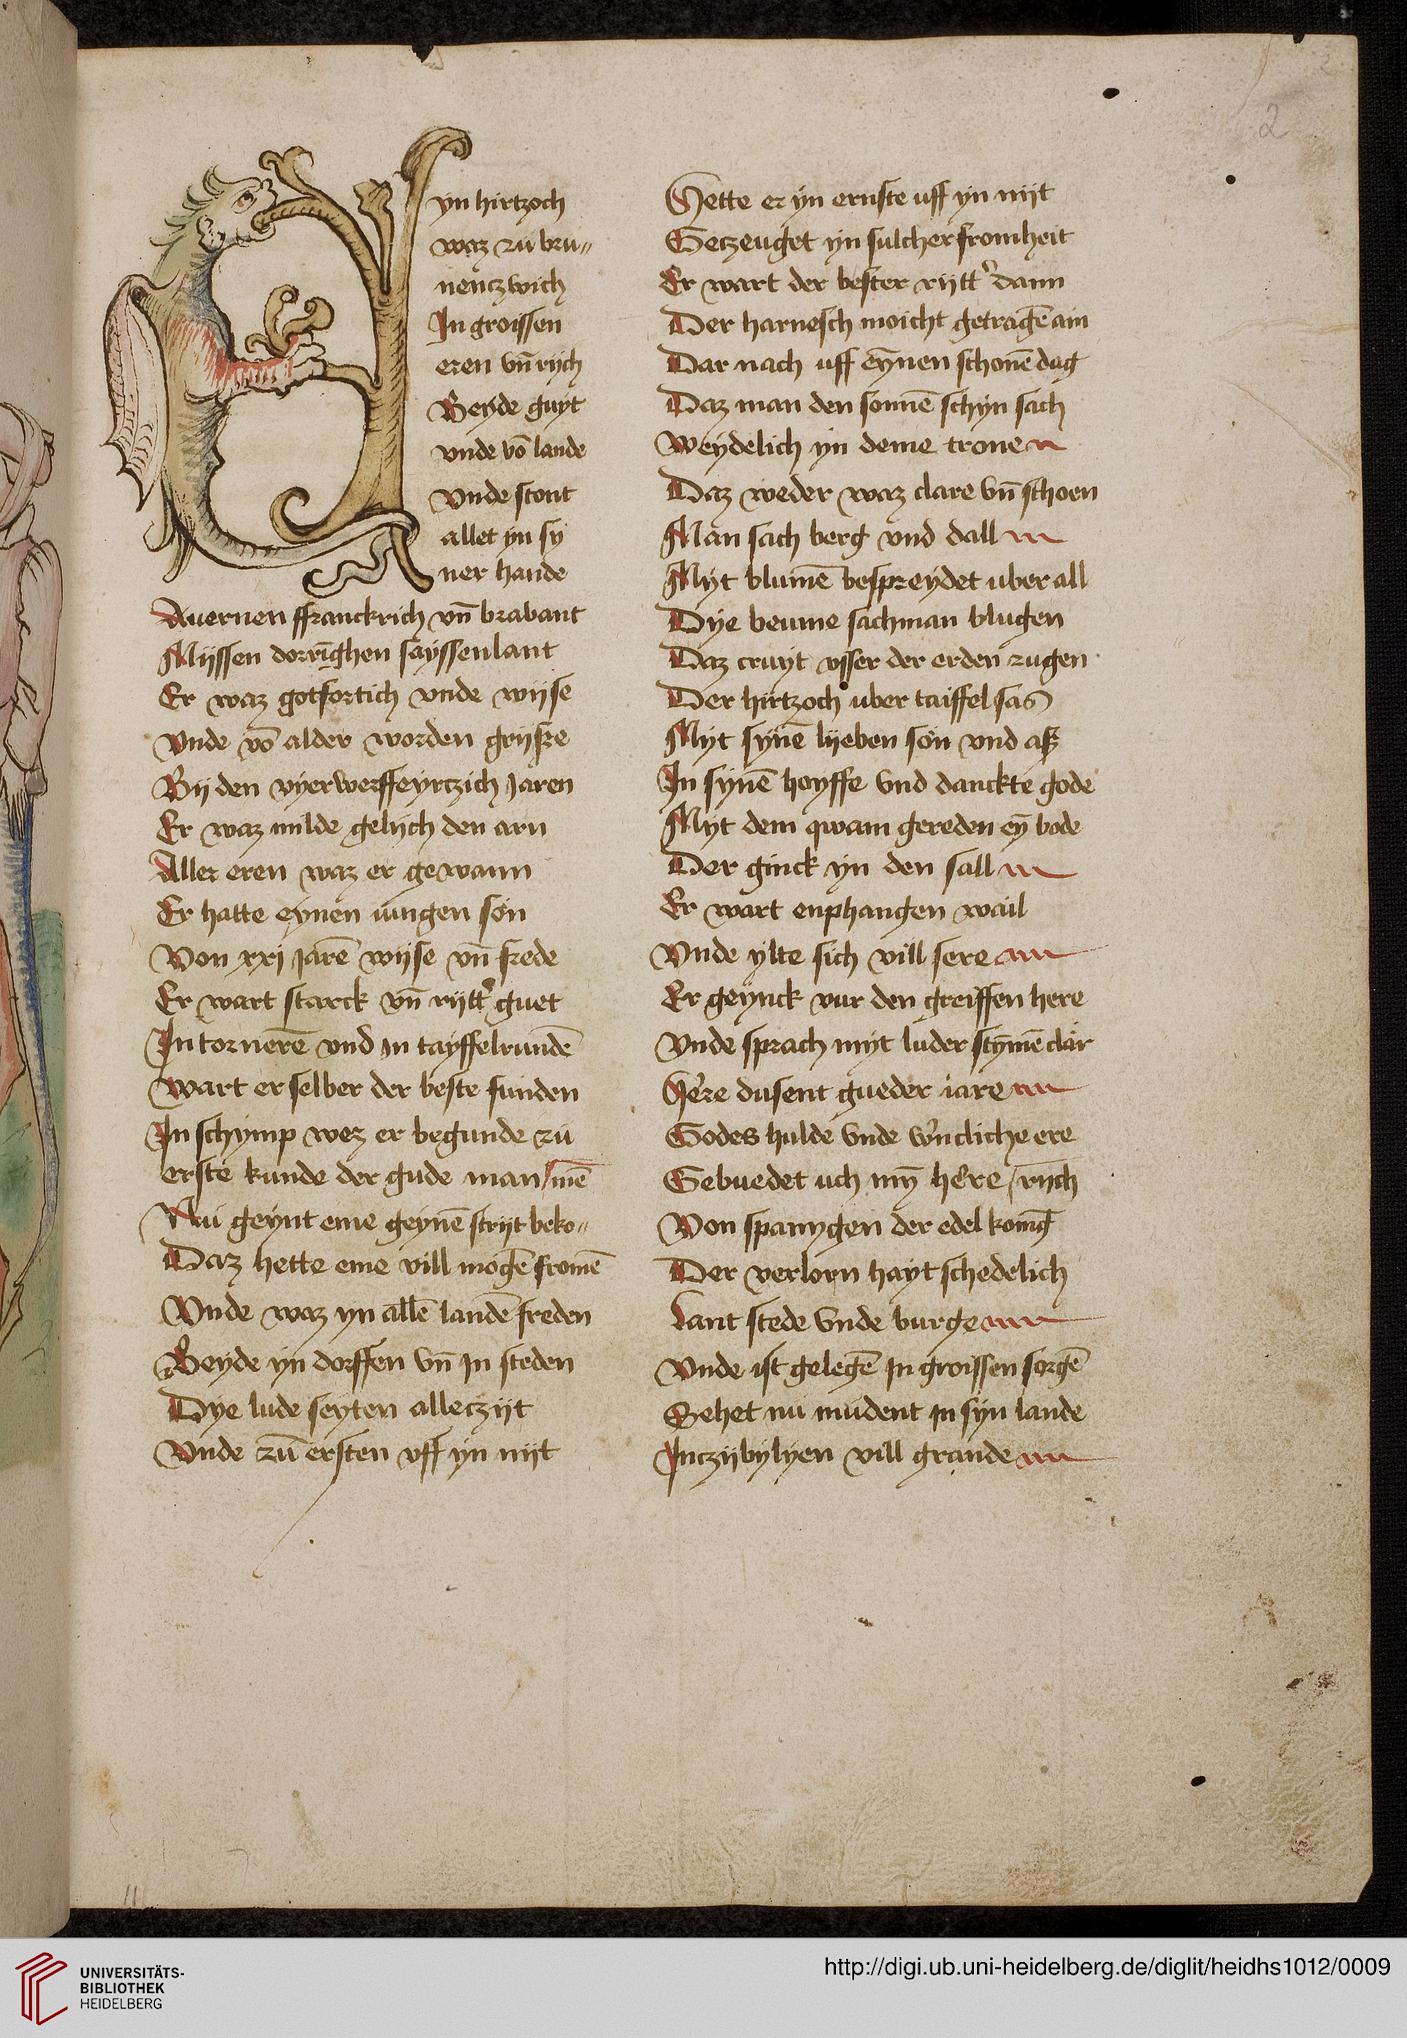 2
yn hirtzoch
waz zü bru〃
nenczwich
In groissen
eren vn̄ rijch
Beyde guyt
vnde vō lande
Vnde stont
allet yn sy
ner hande
Auernen ffranckrich vn̄ brabant
Mijssen dorrīghen sayssenlant
Er waz gotfortich vnde wijse
Vnde vō alder worden grijse
Bij den vyerweffeyrtzich Jaren
Er waz milde gelijch den arn
Aller eren waz er gewann
Er hatte eynen iungen son
Von xxj Jarē wijse vn̄ frede
Er wart starck vn̄ rijtt' guet
In tornerē vnd in tayffelrundē
Wart er selber der beste funden
In schymp wez er begunde zü
erste kunde der gude man / mē
Nu geynt eme geynē strijt beko〃
Daz hette eme vill mogē fromē
Vnde waz yn allē landē freden
Beyde yn dorffen vn̄ in steden
Dye lude seyten alleczijt
Vnde zū ersten vff yn nijt
Hette er yn ernste uff yn nijt
Geczeuget yn sulcher fromheit
Er wart der bester rijtt' dann
Der harnesch moicht getragē an
Dar nach uff eynen schonē dag
Daz man den sonnē schyn sach
Weydelich yn deme tronen
Daz weder waz clare vn̄ schoen
Man sach berg vnd dall
Myt blumē bespreydet uber all
Dye beume sach man blugen
Daz cruyt vsser der erden zugen
Der hirtzoch uber taiffel sas
Myt synē lyeben son vnd aß
In synē hoyffe vnd danckte gode
Myt dem qwam gereden ey̅ bode
Der ginck yn den sall
Er wart enphangen wail
Vnde ylte sich vill sere
Er geynck vur den greiffen here
Vnde sprach myt luder stymē clar
Here dusent gueder iare
Godes hulde vnde w'ncliche ere
Gebuedet uch my̅ here / rych
Von spanygen der edel konig
Der verlorn hayt schedelich
Lant stede vnde burge
Vnde ist gelegē in groissen sorgē
Sehet nu mudent in syn lande
Inczijbylyen vill grande
UNIVERSITÄTS-
BIBLIOTHEK
HEIDELBERG
http://digi.ub.uni-heidelberg.de/diglit/heidhs1012/0009